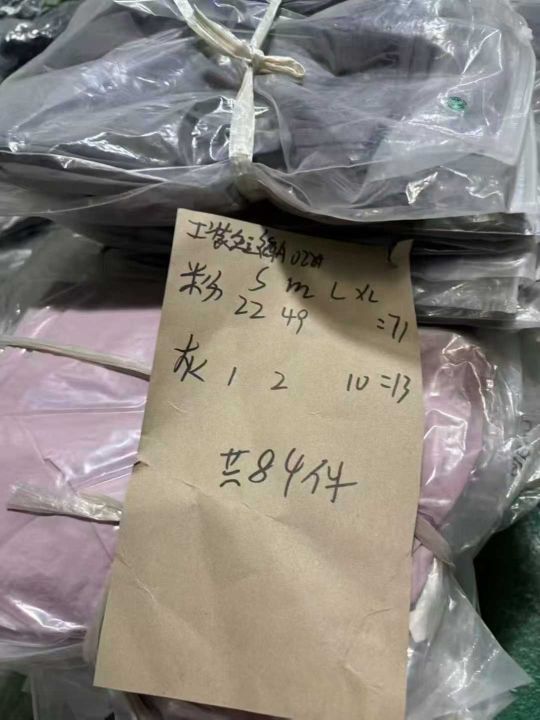 工装
粉 S M L XL
22 49 =71
灰 1 2 10=13
共84件